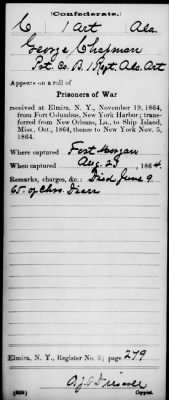 (Confederate.)
C 1 Art Ala.
George Chapman
Pvt. Co. B. 1 Regt. Ala. Art
Appears on a roll of
Prisoners of War
received at Elmira, N. Y., November 19, 1864,
from Fort Columbus, New York Harbor; trans-
ferred from New Orleans, La., to Ship Island,
Miss., Oct., 1864, thence to New York Nov. 5,
1864.
Where captured Fort Morgan
When captured Aug. 23, 1864.
Remarks, charges, &c.: Died June 9
65. of Chro. Diarr
Elmira, N. Y., Register No. 3; page 279
(639) Copyist.